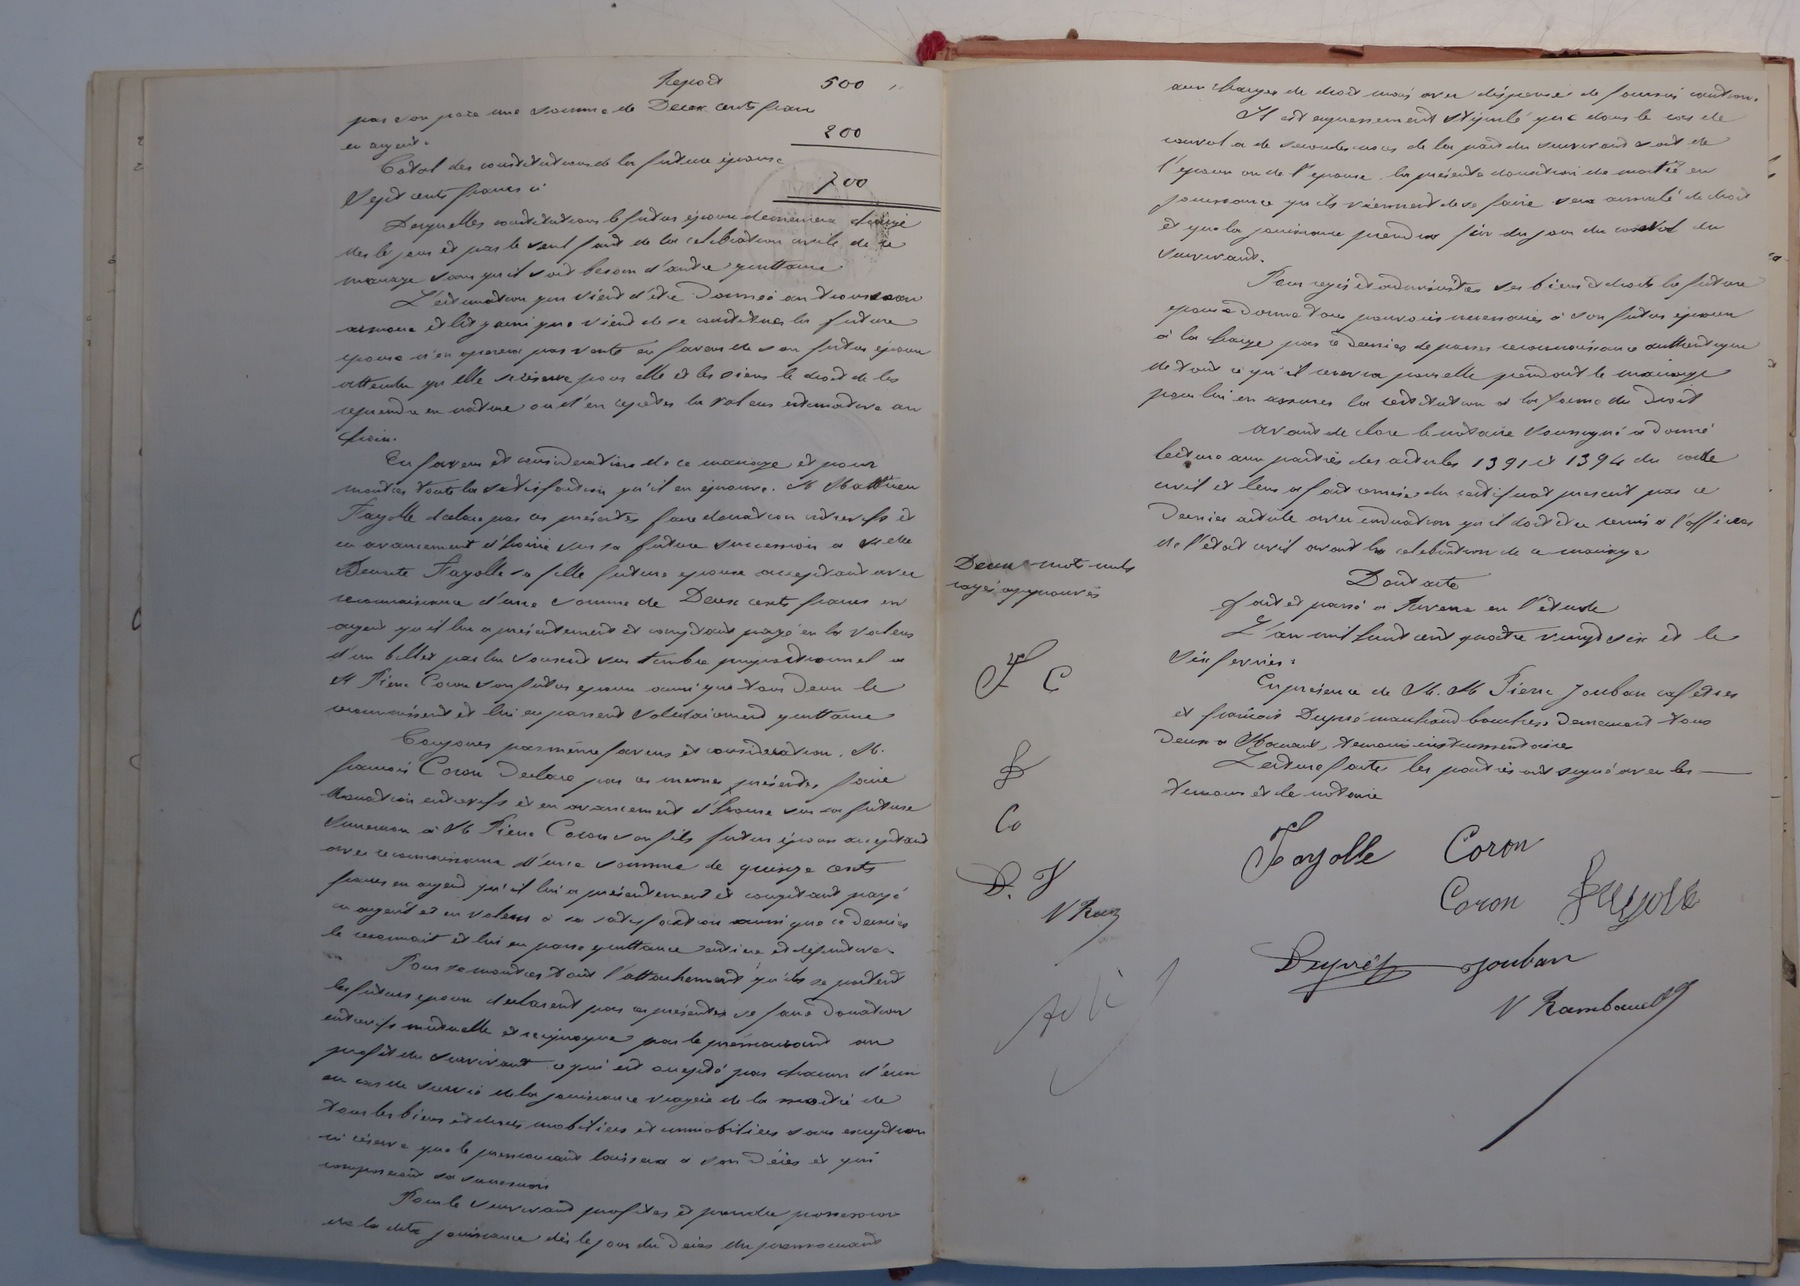 Report 500
par son père une somme de Deux cents francs
en argent. 200
Total des constitutions de la future épouse
Sept cents francs ci 700
Desquelles constitutions le futur époux demeurera chargé
dès le jour et par le seul fait de la célébration civile de ce
mariage sans qu'il soit besoin d'autre quittance
L'estimation qui vient d'être donnée au trousseau
armoire et lit garni que vient de se constituer la future
épouse n'en opérera pas vente en faveur de son futur époux
attendu qu'elle se réserve pour elle et les siens le droit de les
reprendre en nature ou d'en répéter la valeur estimative au
choix.
En faveur et considération de ce mariage et pour
montrer toute la satisfaction qu'il en éprouve. M Matthieu
Fayolle déclare par ces présentes faire donation entrevifs et
en avancement d'hoirie sur sa future succession à Melle
Fayolle sa fille future épouse acceptant avec
reconnaissance d'une somme de Deux cents francs en
argent qu'il lui a présentement et comptant payé en la valeur
d'un billet par lui souscrit sur timbre proportionnel à
M Pierre Coron son futur époux ainsi que tous deux le
reconnaissent et lui en passent volontairement quittance
Toujours par même faveur et considération. M.
françois Coron Déclare par ces mêmes présentes, faire
donation entrevifs et en avancement d'hoirie sur sa future
succession à M Pierre Coron son fils futur époux acceptant
avec reconnaissance d'une somme de quinze cents
francs en argent qu'il lui a présentement et comptant payé
en argent et en valeur à sa satisfaction ainsi que ce dernier
le reconnait et lui en passe quittance entière et définitive.
Pour se montrer tout l'attachement qu'ils se portent
les futurs époux déclarent par ces présentes se faire donation
entrevifs mutuelle et réciproque par le prémourant au
profit du survivant ce qui est accepté par chacun d'eux
en cas de survie de la jouissance viagère de la moitié de
tous les biens et droits mobiliers et immobiliers sans exception
ni réserve que le prémourant laissera à son décès et qui
composeront sa succession
Pour le survivant profiter et prendre possession
de la dite jouissance dès le jour du décès du prémourant
aux charges de droit mais avec dispense de fournir caution.
Il est expressément stipulé que dans le cas de
convol à de secondes noces de la part du survivant soit de
l'époux ou de l'épouse la présente donation de moitié en
jouissance qu'ils viennent de se faire sera annulée de droit
et que la jouissance prendra fin du jour du convol du
survivant.
Pour régir et administrer ses biens et droits la future
épouse donne tous pouvoirs nécessaires à son futur époux
à la charge par ce dernier de passer reconnaissance authentique
de tout ce qu'il recevra pour elle pendant le mariage
pour lui en assurer la restitution à la forme du Droit
Avant de clore le notaire soussigné a donné
lecture aux parties des articles 1391 et 1394 du code
civil et leur a fait remise du certificat prescrit par ce
Dernier article avec indication qu'il doit être remis à l'officier
de l'état civil avant la célébration de ce mariage
Dont acte
fait et passé à en l'étude
L'an mil huit cent quatre vingt six et le
Six fevrier.
En présence de M. M Pierre Jouban cafetier
et françois Dupré marchand boucher Demeurant tous
deux à témoins instrumentaires
Lecture faite les parties ont signé avec les
témoins et le notaire
Deux mots nuls
rayés approuvés
F C
Co
D. J
V Ram
Fayolle Coron
Coron Fayolle
Dupré Jouban
V Rambaud